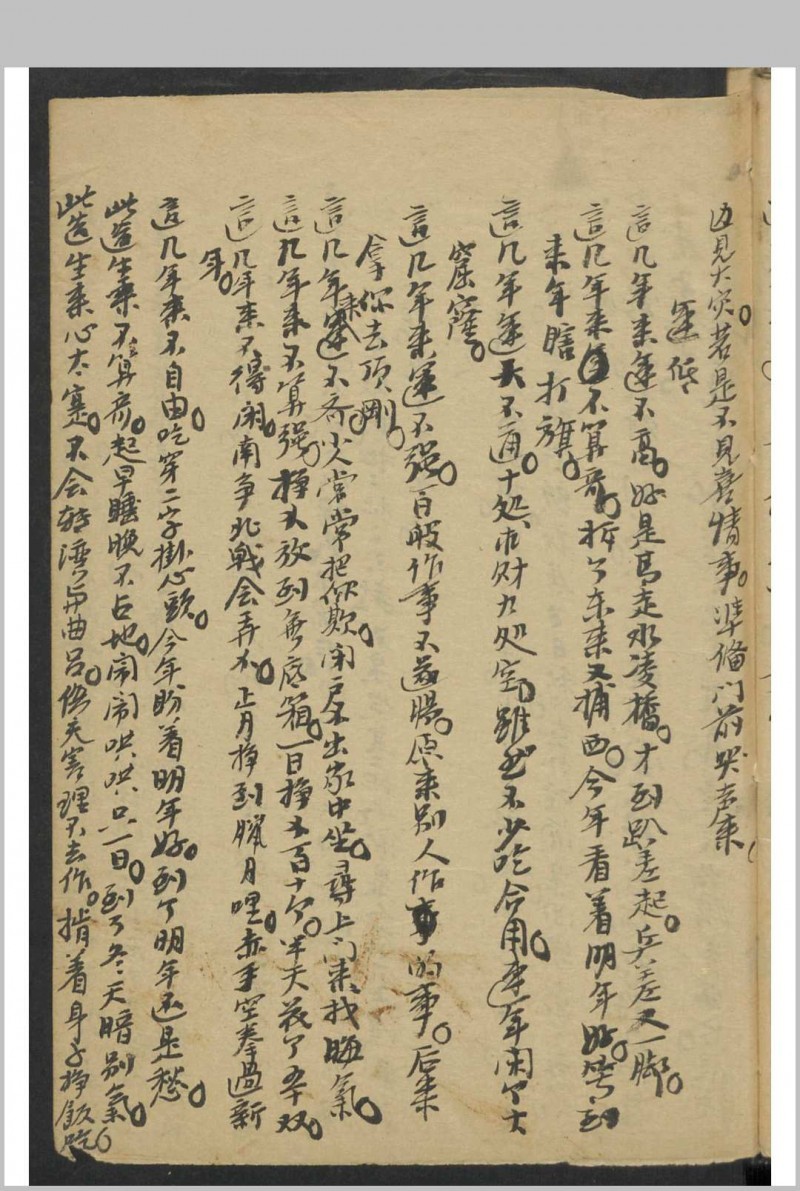 丑見大凶。若是不見喜情事。准備門前哭声来。
運低
這几年来運不高。好是馬走氷凌橋。才到趴差起。兵差又一脚。
這几年来不算奇。拆了东来又補西。今年看着明年好。等到
来年瞎打旗。
這几年運夭不通。十処求财九処空。雖然不少吃合用。連年闹了大
窟窿。
這几年来運不强。百般作事不遂腸。原来别人作的事。后来
拿你去顶剛。
這几年来運不斉。小人常常把你欺。闭户不出家中坐。尋上门来找晦氣。
這几年来不算强。挣不放到無底箱。一日挣不百十个。半天花了五十双。
這几年来不得闲。南争北戰会弄不。正月挣到臘月哩。赤手空拳過新
年。
這几年来不自由。吃穿二字掛心頭。今年盼着明年好。到了明年还是愁。
此造生来不算奇。起早睡晚不占地。闹闹哄哄只一日。到了冬天暗别氣。
此造生来心太寔。不会転湾与曲吕。傷天害理不去作。揹着身子挣飯吃。